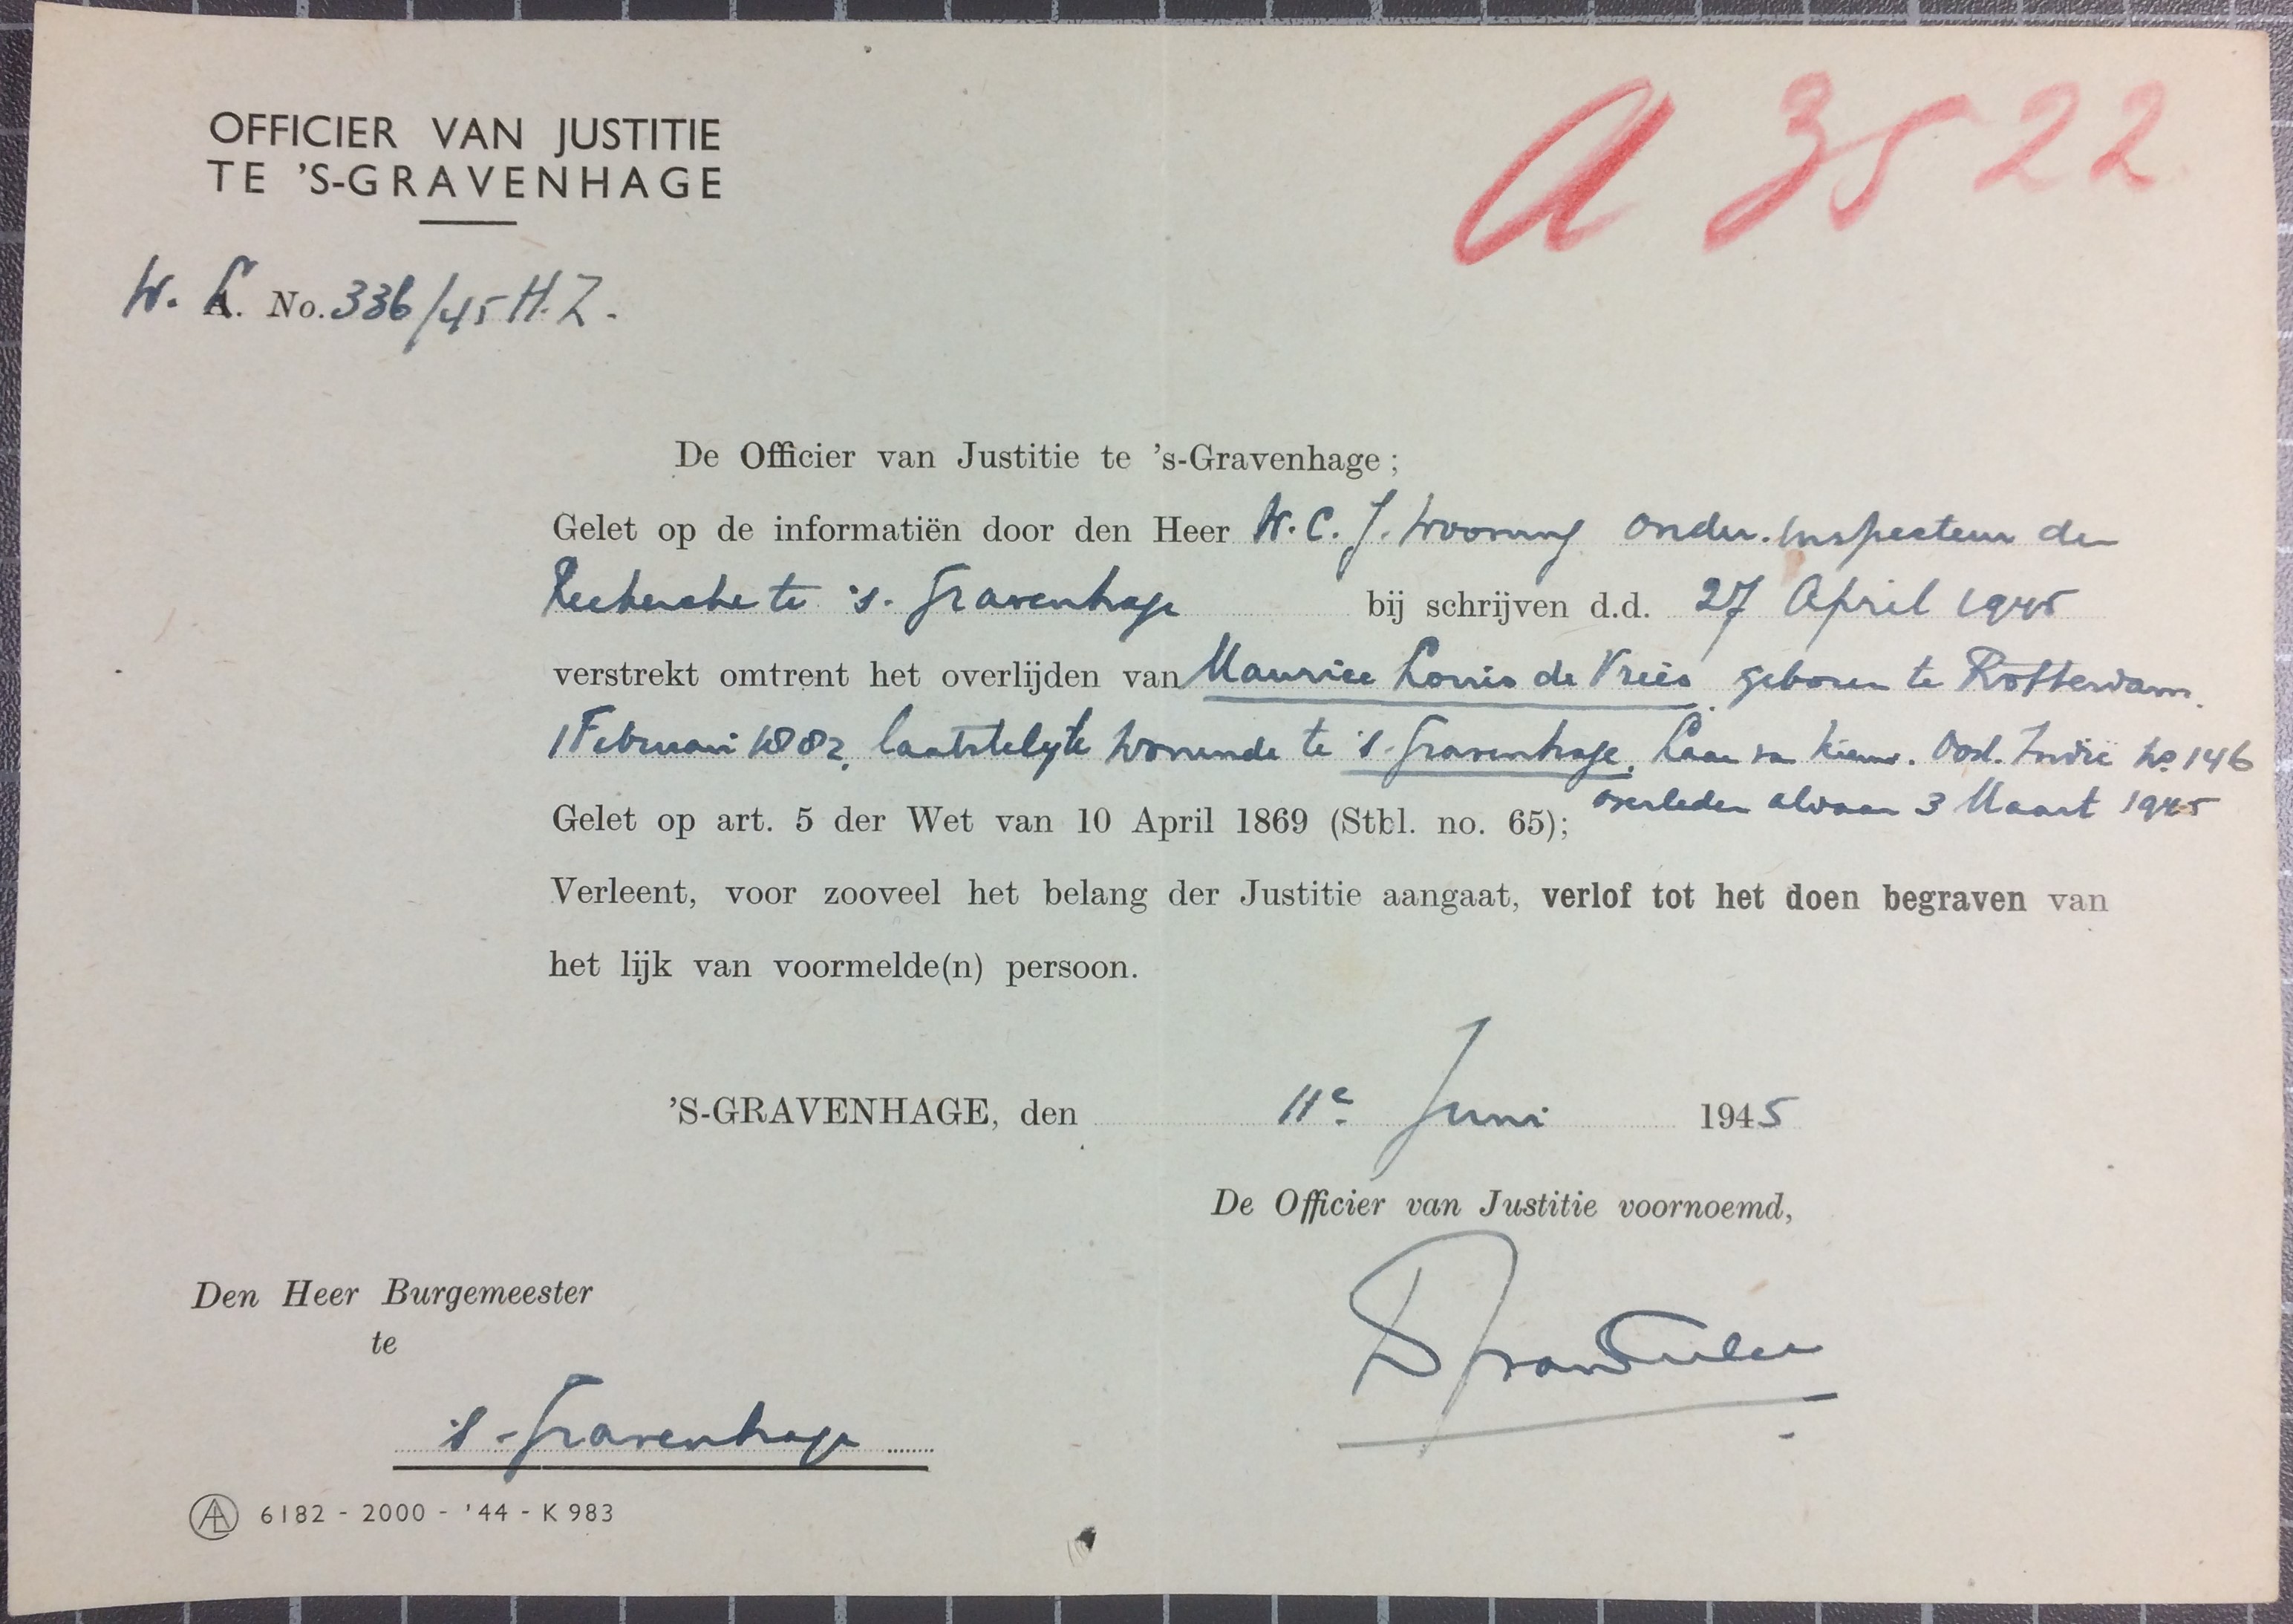 OFFICIER VAN JUSTITIE
TE 'S-GRAVENHAGE
A 3522
W. L. No. 336/45 H.Z.
De Officier van Justitie te 's-Gravenhage;
Gelet op de informatiën door den Heer W.C.J. Woorung onder-Inspecteur der
Recherche te 's-Gravenhage bij schrijven d.d. 27 April 1945
verstrekt omtrent het overlijden van Maurice Louis de Vries geboren te Rotterdam
1 Februari 1882, laatstelijk wonende te 's-Gravenhage, Laan van Nieuw. Oost. Indië no 146
overleden aldaar 3 Maart 1945
Gelet op art. 5 der Wet van 10 April 1869 (Stbl. no. 65);
Verleent, voor zooveel het belang der Justitie aangaat, verlof tot het doen begraven van
het lijk van voormelde(n) persoon.
'S-GRAVENHAGE, den 11e Juni 1945
De Officier van Justitie voornoemd,
Den Heer Burgemeester
te
's-Gravenhage
AL 6182 - 2000 - '44 - K 983